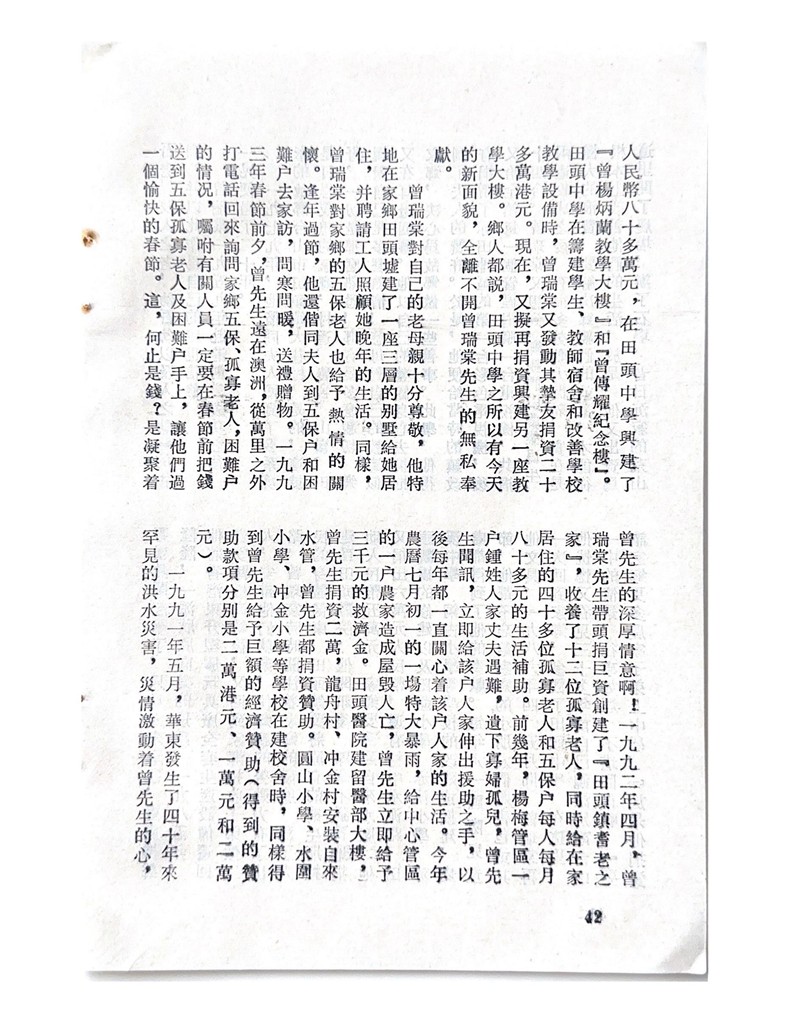 人民幣八十多萬元，在田頭中學興建了
『曾楊炳蘭教學大樓』和『曾傳耀紀念樓』。
田頭中學在籌建學生、教師宿舍和改善學校
教學設備時，曾瑞棠又發動其摯友捐資二十
多萬港元。現在，又擬再捐資興建另一座教
學大樓。鄉人都説，田頭中學之所以有今天
的新面貌，全離不開曾瑞棠先生的無私奉
獻。
曾瑞棠對自己的老母親十分尊敬，他特
地在家鄉田頭墟建了一座三層的别墅給她居
住，并聘請工人照顧她晚年的生活。同樣，
曾瑞棠對家鄉的五保老人也給予熱情的關
懷。逢年過節，他還偕同夫人到五保户和困
難户去家訪，問寒問暖，送禮贈物。一九九
三年春節前夕，曾先生遠在澳洲，從萬里之外
打電話回來詢問家鄉五保、孤寡老人，困難户
的情况，囑咐有關人員一定要在春節前把錢
送到五保孤寡老人及困難户手上，讓他們過
一個愉快的春節。這，何止是錢？是凝聚着
曾先生的深厚情意啊！一九九二年四月，曾
瑞棠先生帶頭捐巨資創建了『田頭鎮耆老之
家』，收養了十三位孤寡老人，同時給在家
居住的四十多位孤寡老人和五保户每人每月
八十多元的生活補助。前幾年，楊梅管區一
户鍾姓人家丈夫遇難，遺下寡婦孤兒，曾先
生聞訊，立即給該户人家伸出援助之手，以
後每年都一直關心着該户人家的生活。今年
農曆七月初一的一塲特大暴雨，給中心管區
的一户農家造成屋毁人亡，曾先生立即給予
三千元的救濟金。田頭醫院建留醫部大樓，
曾先生捐資二萬，龍舟村、冲金村安裝自來
水管，曾先生都捐資贊助。圓山小學、水圍
小學、冲金小學等學校在建校舍時，同樣得
到曾先生給予巨額的經濟贊助（得到的贊
助款項分别是二萬港元、一萬元和二萬
元）。
一九九一年五月，華東發生了四十年來
罕見的洪水災害，災情激動着曾先生的心，
42